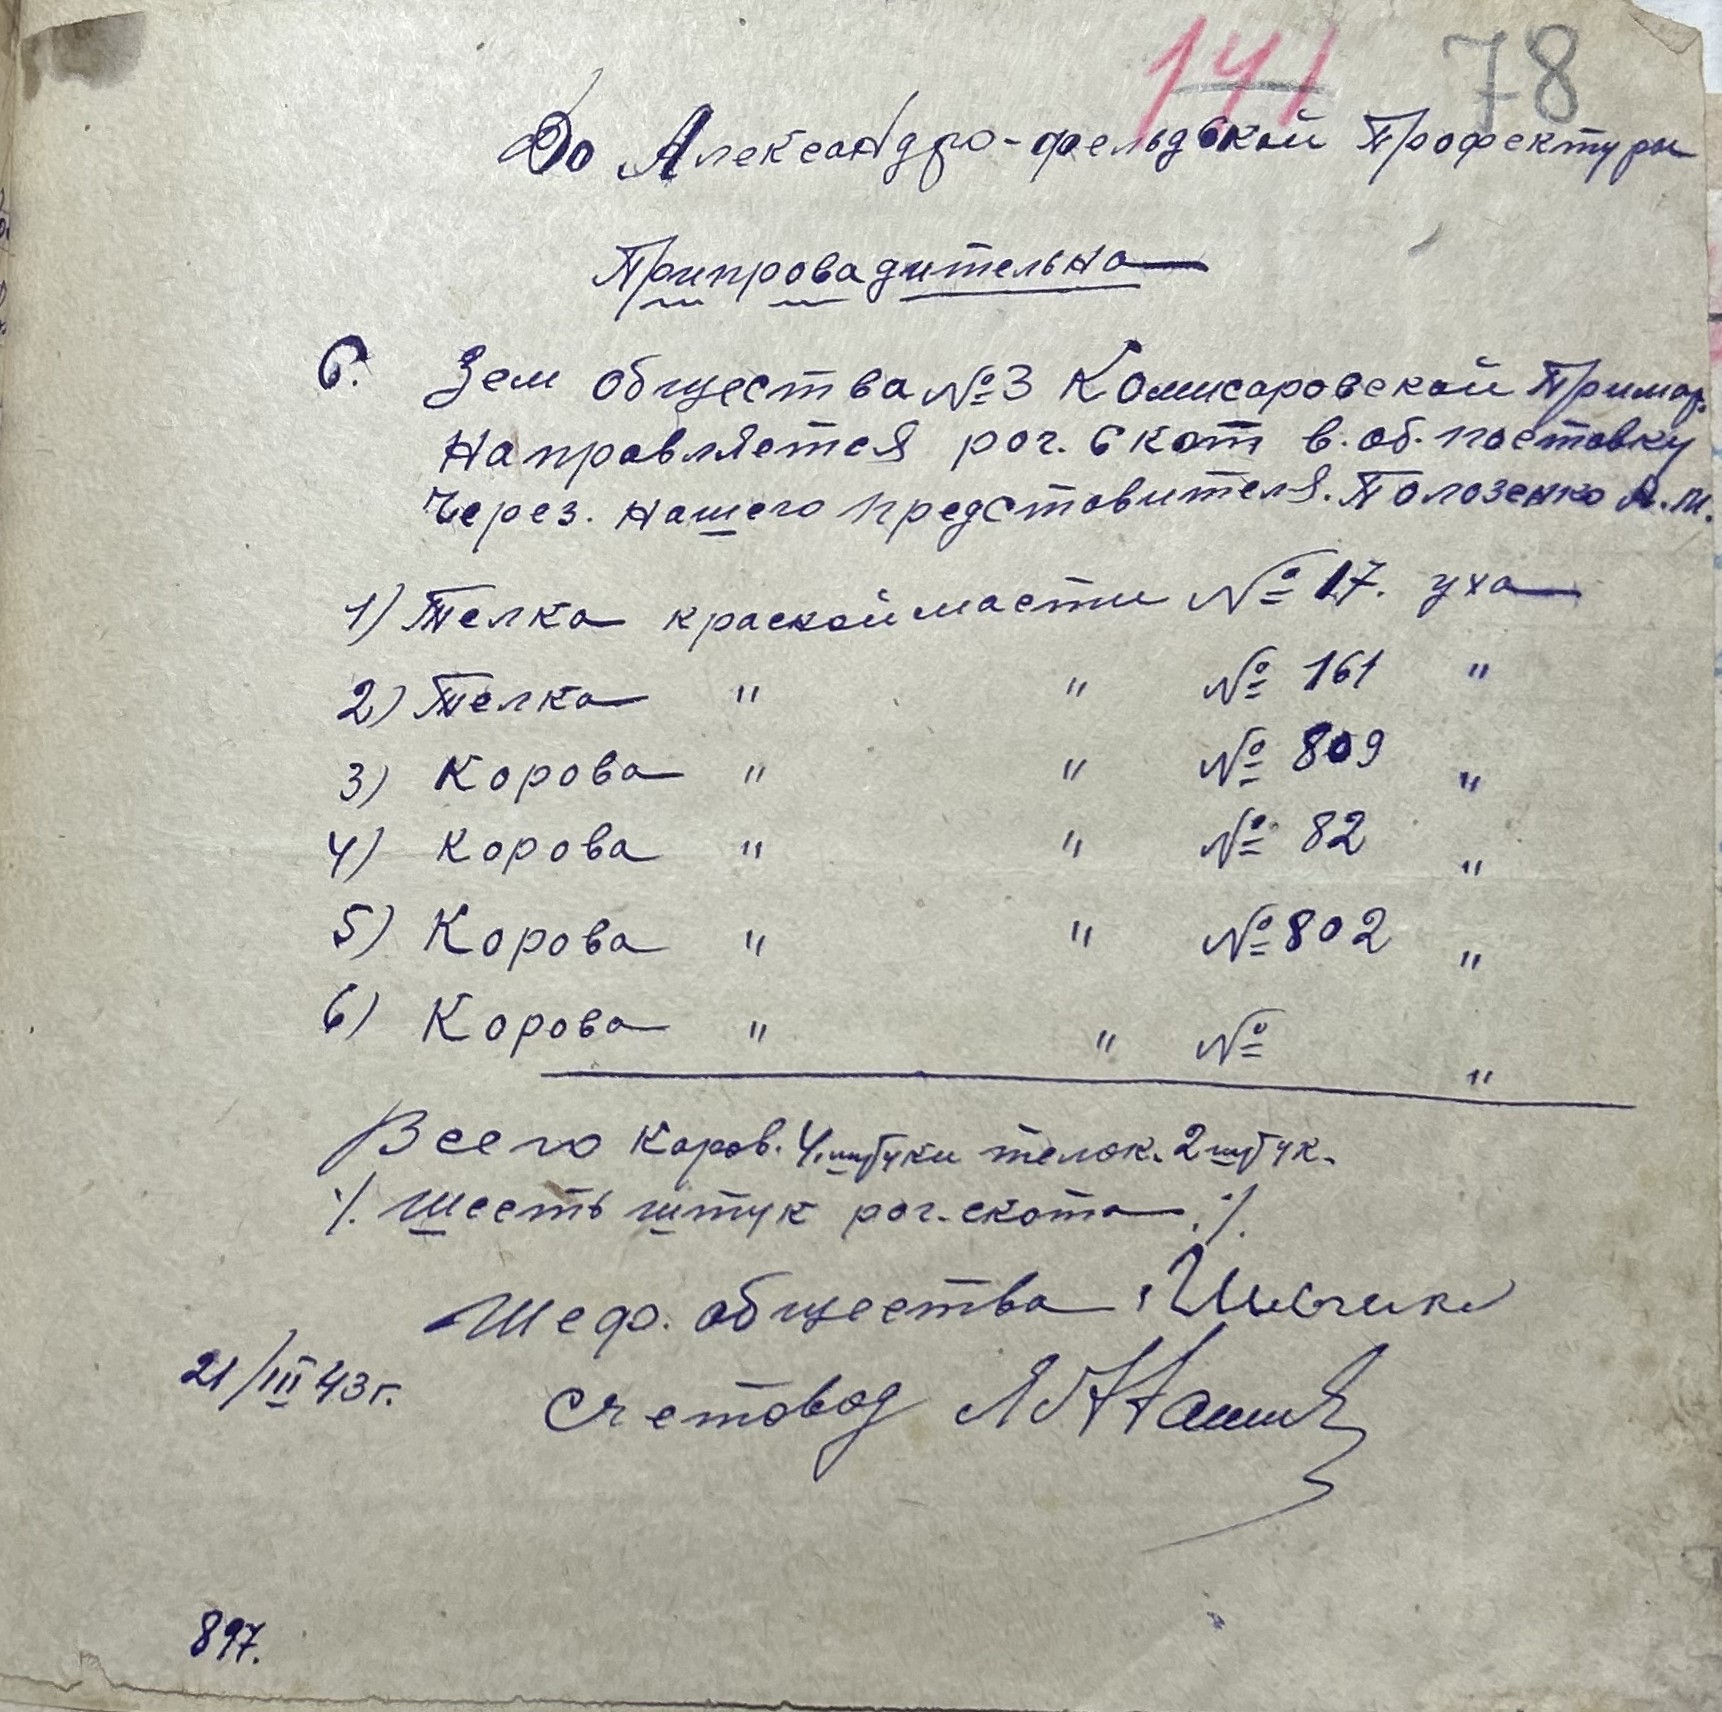 141 78
До Александро-фельдской Профектуры
Припровадительна
С. Зем общества №3 Комисаровской Примар.
Направляется рог. скот в. об. поставку
Через. нашего представителя. Полозенко А.М.
1) Телка краской масти № 17. уха
2) Телка " " № 161 "
3) Корова " " № 809 "
4) Корова " " № 82 "
5) Корова " " № 802 "
6) Корова " " № "
Всего коров. 4 штуки телок. 2 штук.
·/. Шесть штук рог. скота ·/.
Шеф. общества
21/III 43 г. Счетовод
897.